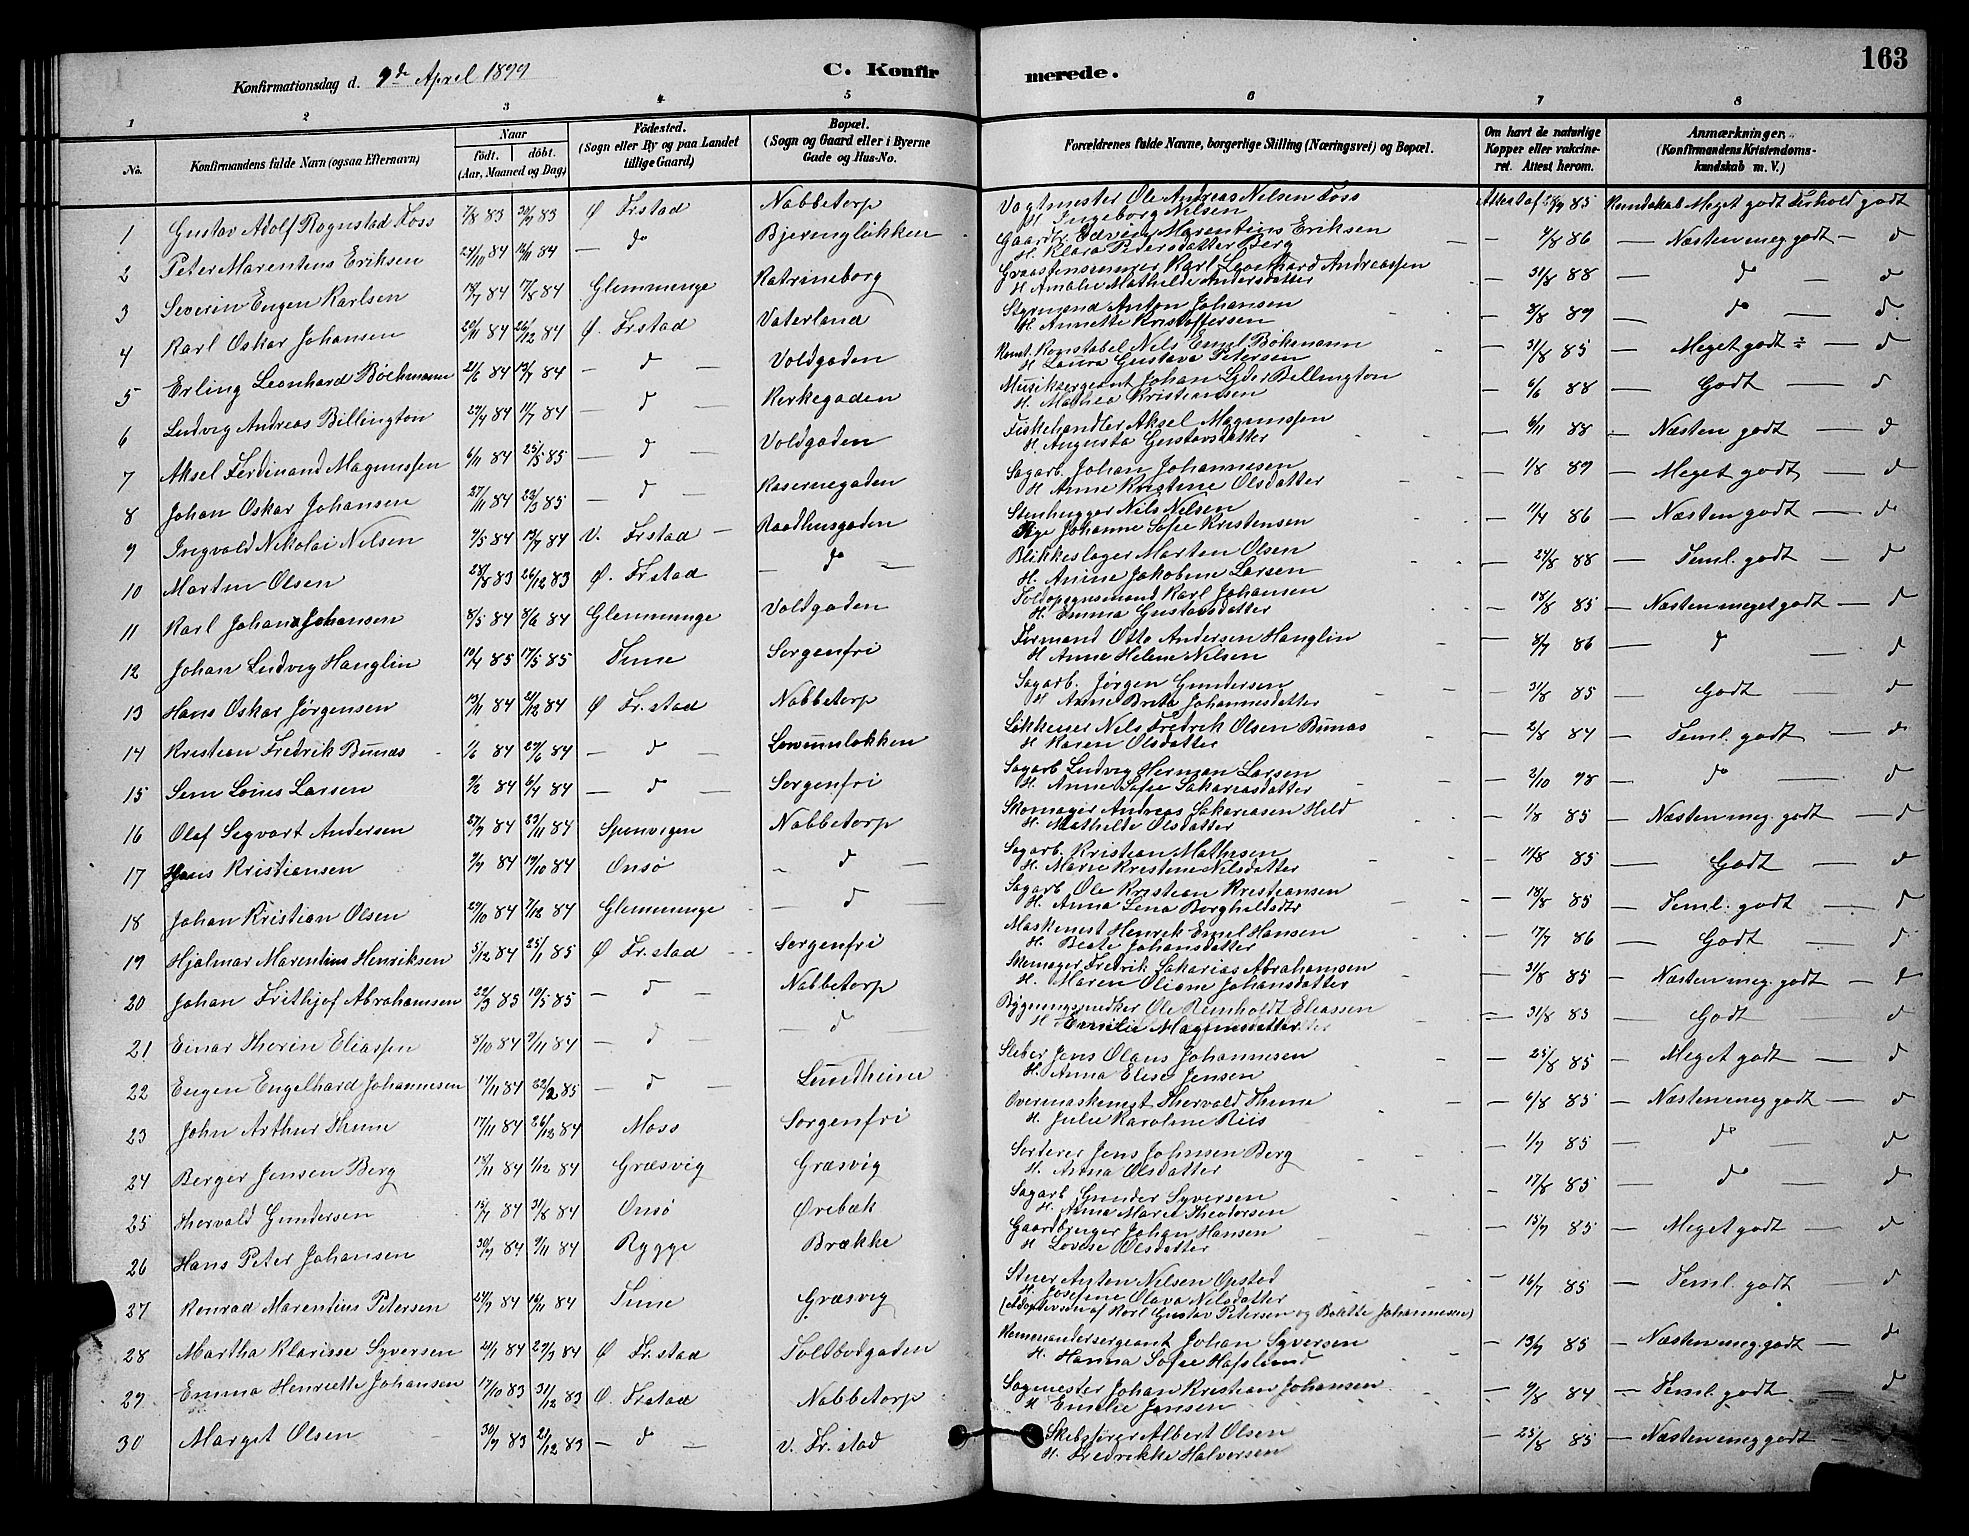 Konfirmationsdag d. 9de April 1899
C. Konfirmerede.
163
1 2 3 4 5 6 7 8
No.
Konfirmandens fulde Navn (ogsaa Efternavn)
Naar
födt. döbt.
(Aar, Maaned og Dag)
Födested.
(Sogn eller By og paa Landet tillige Gaard)
Bopæl.
(Sogn og Gaard eller i Byerne Gade og Hus-No.
Forældrenes fulde Navne, borgerlige Stilling (Næringsvei) og Bopæl.
Om havt de naturlige Kopper eller vakcineret. Attest herom.
Anmærkninger.
(Konfirmandens Kristendomskundskab m. V.)
1 Gustav Adolf Rognstad Foss 7/8 83 30/9 83 Ø Frstad Nabbetorp Vagtmester Ole Andreas Nilsen Foss Attest af 24/9 85 Kundskab Meget godt Forhold godt
H. Ingeborg Nilsen
2 Peter Marentius Eriksen 24/10 84 16/11 84 — do Bjerengløkken Gaardbr. Edvin Marentius Eriksen — 4/8 86 — Næsten meg godt — d
H. Klara Pedersdatter Berg
3 Severin Eugen Karlsen 18/7 84 17/8 84 Glemminge Katrineborg Graastensmurer Karl Leonhard Andreassen — 31/8 88 — d — d
H Amalie Mathilde Andersdatter
4 Karl Oskar Johansen 20/11 84 26/12 84 Ø. Frstad Vaterland Styrmand Anton Johansen — 8/8 89 — do — d.
H. Annette Kristoffersen
5 Erling Leonhard Böckmann 21/6 84 13/7 84 — d Voldgaden Konst. Kognstabel Nils Emil Bökemann — 31/8 85 — Meget godt ÷ — d
H Laura Gustava Petersen
6 Ludvig Andreas Billington 29/4 84 11/7 84 — d — Kirkegaden Musiksergeant Johan Eder Billington — 6/6 88 — Godt — d
H. Mathea Kristiansen
7 Aksel Ferdinand Magnussen 6/11 84 25/5 85 — d — Voldgaden Fiskehandler Aksel Magnussen — 6/11 88 — Næsten godt — d
H. Augusta Gustavsdatter
8 Johan Oskar Johansen 27/11 84 22/3 85 — d — Kasernegaden Sagarb. Johan Johannesen — 1/8 89 — Meget godt — d
H Anne Kristine Olsdatter
9 Ingvald Nikolai Nilsen 9/5 84 13/7 84 V. Frstad — Raadhusgaden Stenhugger Nils Nilsen — 11/4 86 — Næsten godt — d
Pige Johanne Sofie Kristensen
10 Martin Olsen 28/8 83 26/12 83 Ø. Frstad — do — Blikkeslager Marten Olsen — 24/8 88 — Teml. godt — d
H. Anine Jakobine Larsen
11 Karl Johan Johansen 8/5 84 8/6 84 Glemminge Voldgaden Toldopsynsmand Karl Johansen — 18/8 85 — Næsten meget godt — d
H. Emma Gustavsdatter
12 Johan Ludvig Hanglin 19/4 85 17/5 85 Tune Sorgenfri Formand Otto Andersen Hanglin — 8/7 86 — d — d
H Anne Helene Nilsen
13 Hans Oskar Jørgensen 13/11 84 21/12 84 Ø Fr.stad Nabbetorp Sagarb. Jørgen Gundersen — 31/8 85 — Godt — d
H Anne Brita Johannesdatter
14 Kristian Fredrik Bunæs 1/6 84 29/6 84 — d — Lovumløkken Løkkeier Nils Fredrik Olsen Bunæs — 2/8 84 — Teml. godt — d
H Karen Olsdatter
15 Sem Louis Larsen 9/2 84 6/4 84 — d — Sorgenfri Sagarb Ludvig Herman Larsen — 2/10 98 — do — d
H. Anne Sofie Sakariasdatter
16 Olaf Sigvart Andersen 27/9 84 23/11 84 Spenvigen Nabbetorp Skomager Andreas Sakariasen Held — 1/8 85 — Næsten meg. godt — d
H. Mathilde Olsdatter
17 Hans Kristiansen 9/9 84 19/10 84 Onsø — d — Sagarb. Kristian Mathisen — 11/8 85 — Godt — d
H. Marie Kristine Nilsdatter
18 Johan Kristian Olsen 29/10 84 7/12 84 Glemminge — d — Sagarb Ole Kristian Kristiansen — 18/8 85 — Teml. godt — d
H. Anna Lena Borghildsdtr
19 Hjalmar Marentius Henriksen 5/12 84 25/1 85 Ø Fr.stad — Sorgenfri Maskinist Henrik Emil Hansen — 17/7 86 — Godt — d
H. Beate Johansdatter
20 Johan Frithjof Abrahamsen 22/3 85 10/5 85 — d — Nabbetorp Skomager Fredrik Sakarias Abrahamsen — 31/8 85 — Næsten meg. godt — d
H. Maren Oliane Johansdatter
21 Einar Thorin Eliassen 5/10 84 9/11 84 — d — d — Bygningssnedker Ole Reinholdt Eliassen — 31/8 85 — Godt — d
H Emilie Magnusdatter
22 Eugen Engelhard Johannesen 14/11 84 22/2 85 — d — Lundheim Støber Jens Olaus Johannesen — 25/8 85 — Meget godt — d
H. Anna Elise Jensen
23 John Arthur Thune 17/11 84 26/12 84 Moss Sorgenfri Overmaskinist Thorvald Thune — 6/8 85 — Næsten meg godt — d
H. Julie Karoline Riis
24 Berger Jensen Berg 18/11 84 1/12 84 Græsvig Græsvig Sorterer Jens Johnsen Berg — 1/7 85 — do — d
H. Anna Olsdatter
25 Thorvald Gundersen 15/7 84 31/8 84 Onsø Ørebæk Sagarb Gunder Syversen — 17/8 85 — do — d
H. Anna Marie Theodorsen
26 Hans Peter Johansen 30/9 84 9/11 84 Rygge Brække Gaardbruger Johan Hansen — 15/7 85 — Meget godt — d
H Lovise Olsdatter
27 Konrad Marentius Petersen 24/9 84 16/11 84 Tune Græsvig Stuer Anton Nilsen Opstad — 16/7 85 — Teml. godt — d
H. Josefine Olava Nilsdatter
(Adoptivsøn af Karl Gustav Petersen og Bolette Johannesen)
28 Martha Klarisse Syversen 21/1 84 29/3 84 Ø Fr.stad Toldbodgaden Kommandersergeant Johan Syversen — 13/9 85 — Næsten meg. godt — d
H. Hanna Sofie Hafslund
29 Emma Henriette Johansen 17/10 83 31/12 83 Ø. Frstad Nabbetorp Sagmester Johan Kristian Johansen — 9/8 84 — Teml. godt — d
H Emelie Jensen
30 Marget Olsen 30/9 83 21/12 83 — d — V. Fr.stad Skibsfører Albert Olsen — 25/8 85 — Næsten meg godt — d
H. Fredrikke Halvorsen